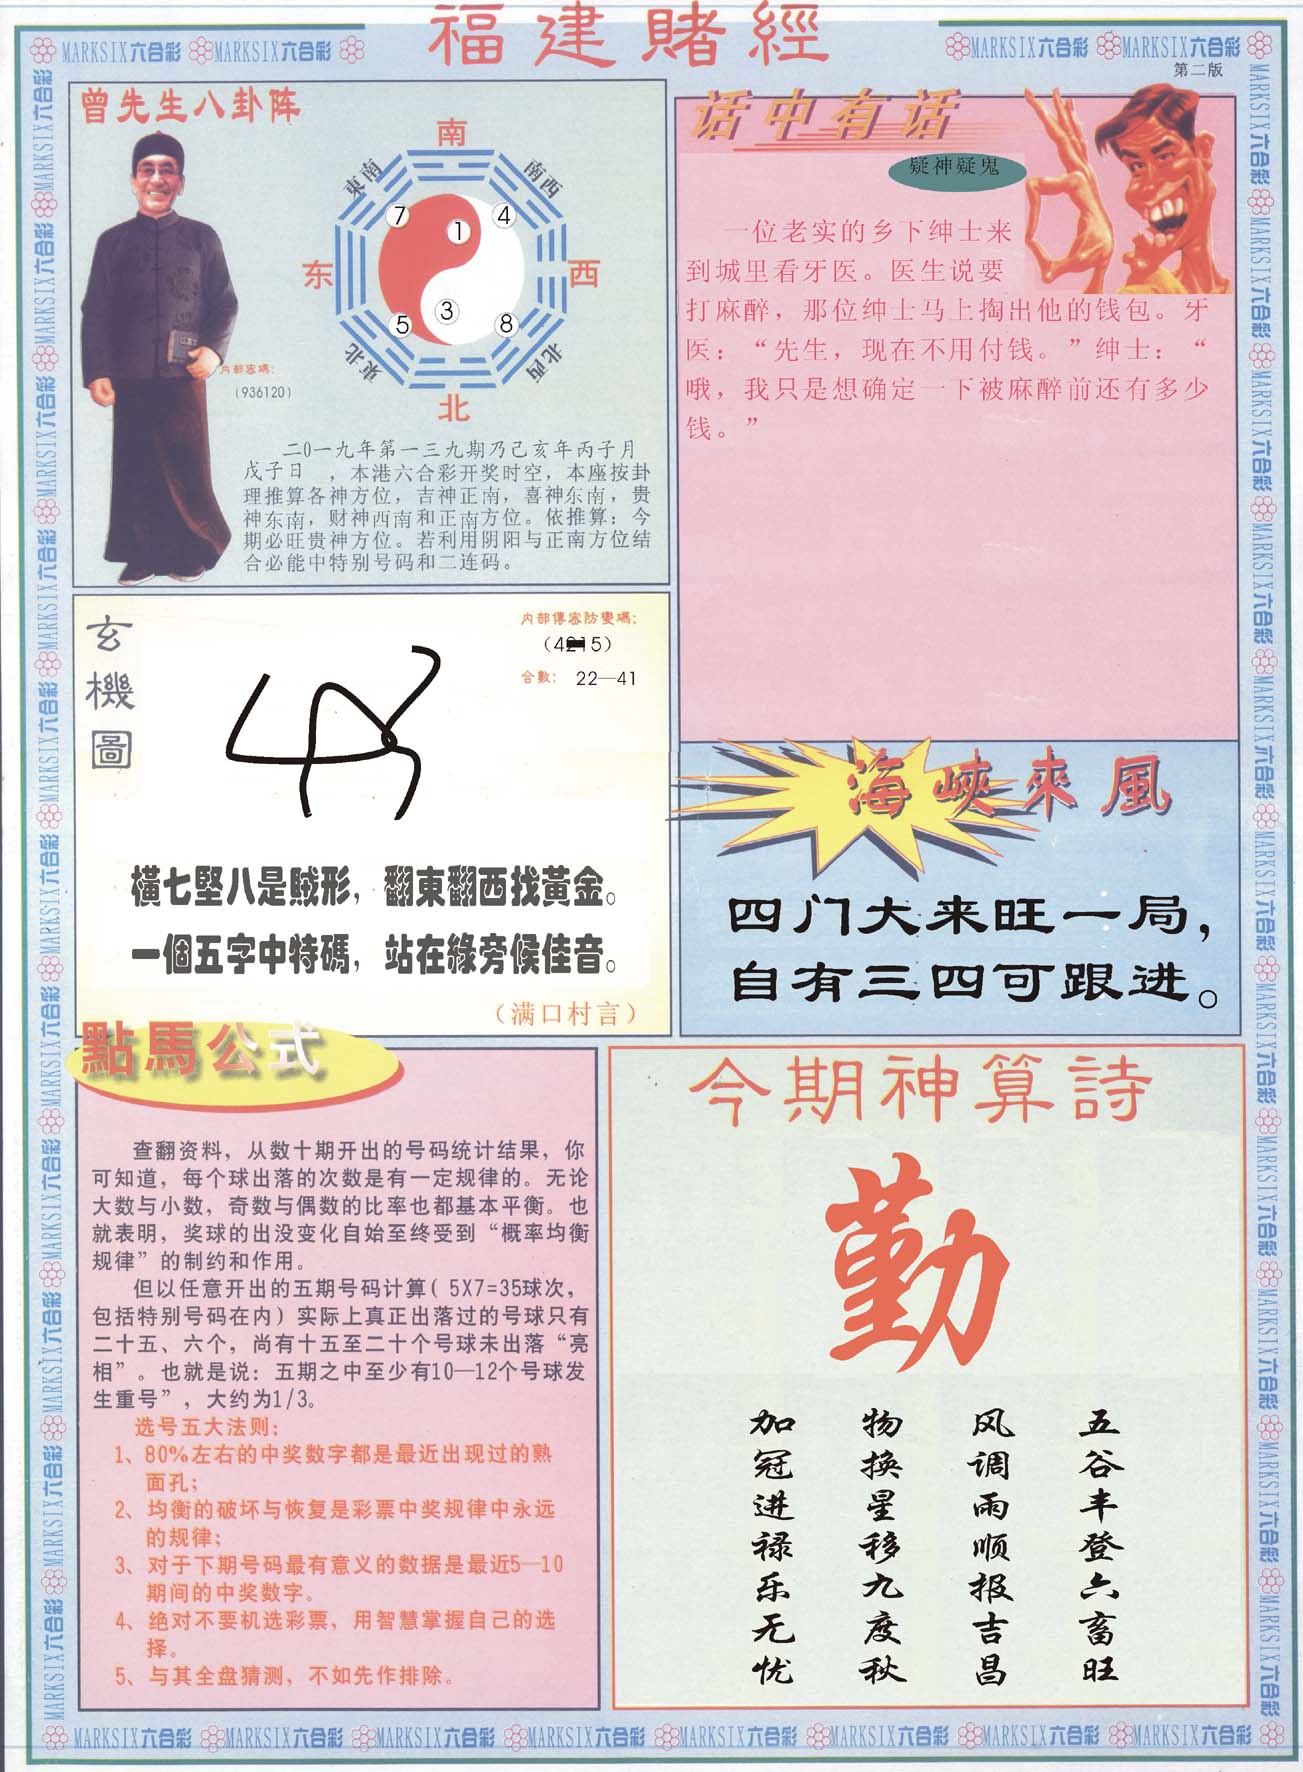 福建賭經
MARKSIX六合彩 MARKSIX六合彩
MARKSIX六合彩 MARKSIX六合彩
第二版
曾先生八卦阵
南
東南
南西
7
1
4
东
西
5
3
8
東北
北西
北
内部密碼：
(936120)
二0一九年第一三九期乃己亥年丙子月
戊子日 ，本港六合彩开奖时空，本座按卦
理推算各神方位，吉神正南，喜神东南，贵
神东南，财神西南和正南方位。依推算：今
期必旺贵神方位。若利用阴阳与正南方位结
合必能中特别号码和二连码。
话中有话
疑神疑鬼
一位老实的乡下绅士来
到城里看牙医。医生说要
打麻醉，那位绅士马上掏出他的钱包。牙
医：“先生，现在不用付钱。”绅士：“
哦，我只是想确定一下被麻醉前还有多少
钱。”
玄機圖
内部傳密防變碼：
合數： 22—41
橫七堅八是賊形，翻東翻西找黃金。
一個五字中特碼，站在綠旁候佳音。
（满口村言）
海峽來風
四门大来旺一局，
自有三四可跟进。
點馬公式
查翻资料，从数十期开出的号码统计结果，你
可知道，每个球出落的次数是有一定规律的。无论
大数与小数，奇数与偶数的比率也都基本平衡。也
就表明，奖球的出没变化自始至终受到“概率均衡
规律”的制约和作用。
但以任意开出的五期号码计算( 5X7=35球次，
包括特别号码在内）实际上真正出落过的号球只有
二十五、六个，尚有十五至二十个号球未出落“亮
相”。也就是说：五期之中至少有10—12个号球发
生重号”，大约为1/3。
选号五大法则：
1、80%左右的中奖数字都是最近出现过的熟
面孔；
2、均衡的破坏与恢复是彩票中奖规律中永远
的规律；
3、对于下期号码最有意义的数据是最近5—10
期间的中奖数字。
4、绝对不要机选彩票，用智慧掌握自己的选
择。
5、与其全盘猜测，不如先作排除。
今期神算詩
勤
五谷丰登六畜旺
风调雨顺报吉昌
物换星移九度秋
加冠进禄乐无忧
MARKSIX六合彩 MARKSIX六合彩 MARKSIX六合彩 MARKSIX六合彩 MARKSIX六合彩 MARKSIX六合彩 MARKSIX六合彩 MARKSIX六合彩